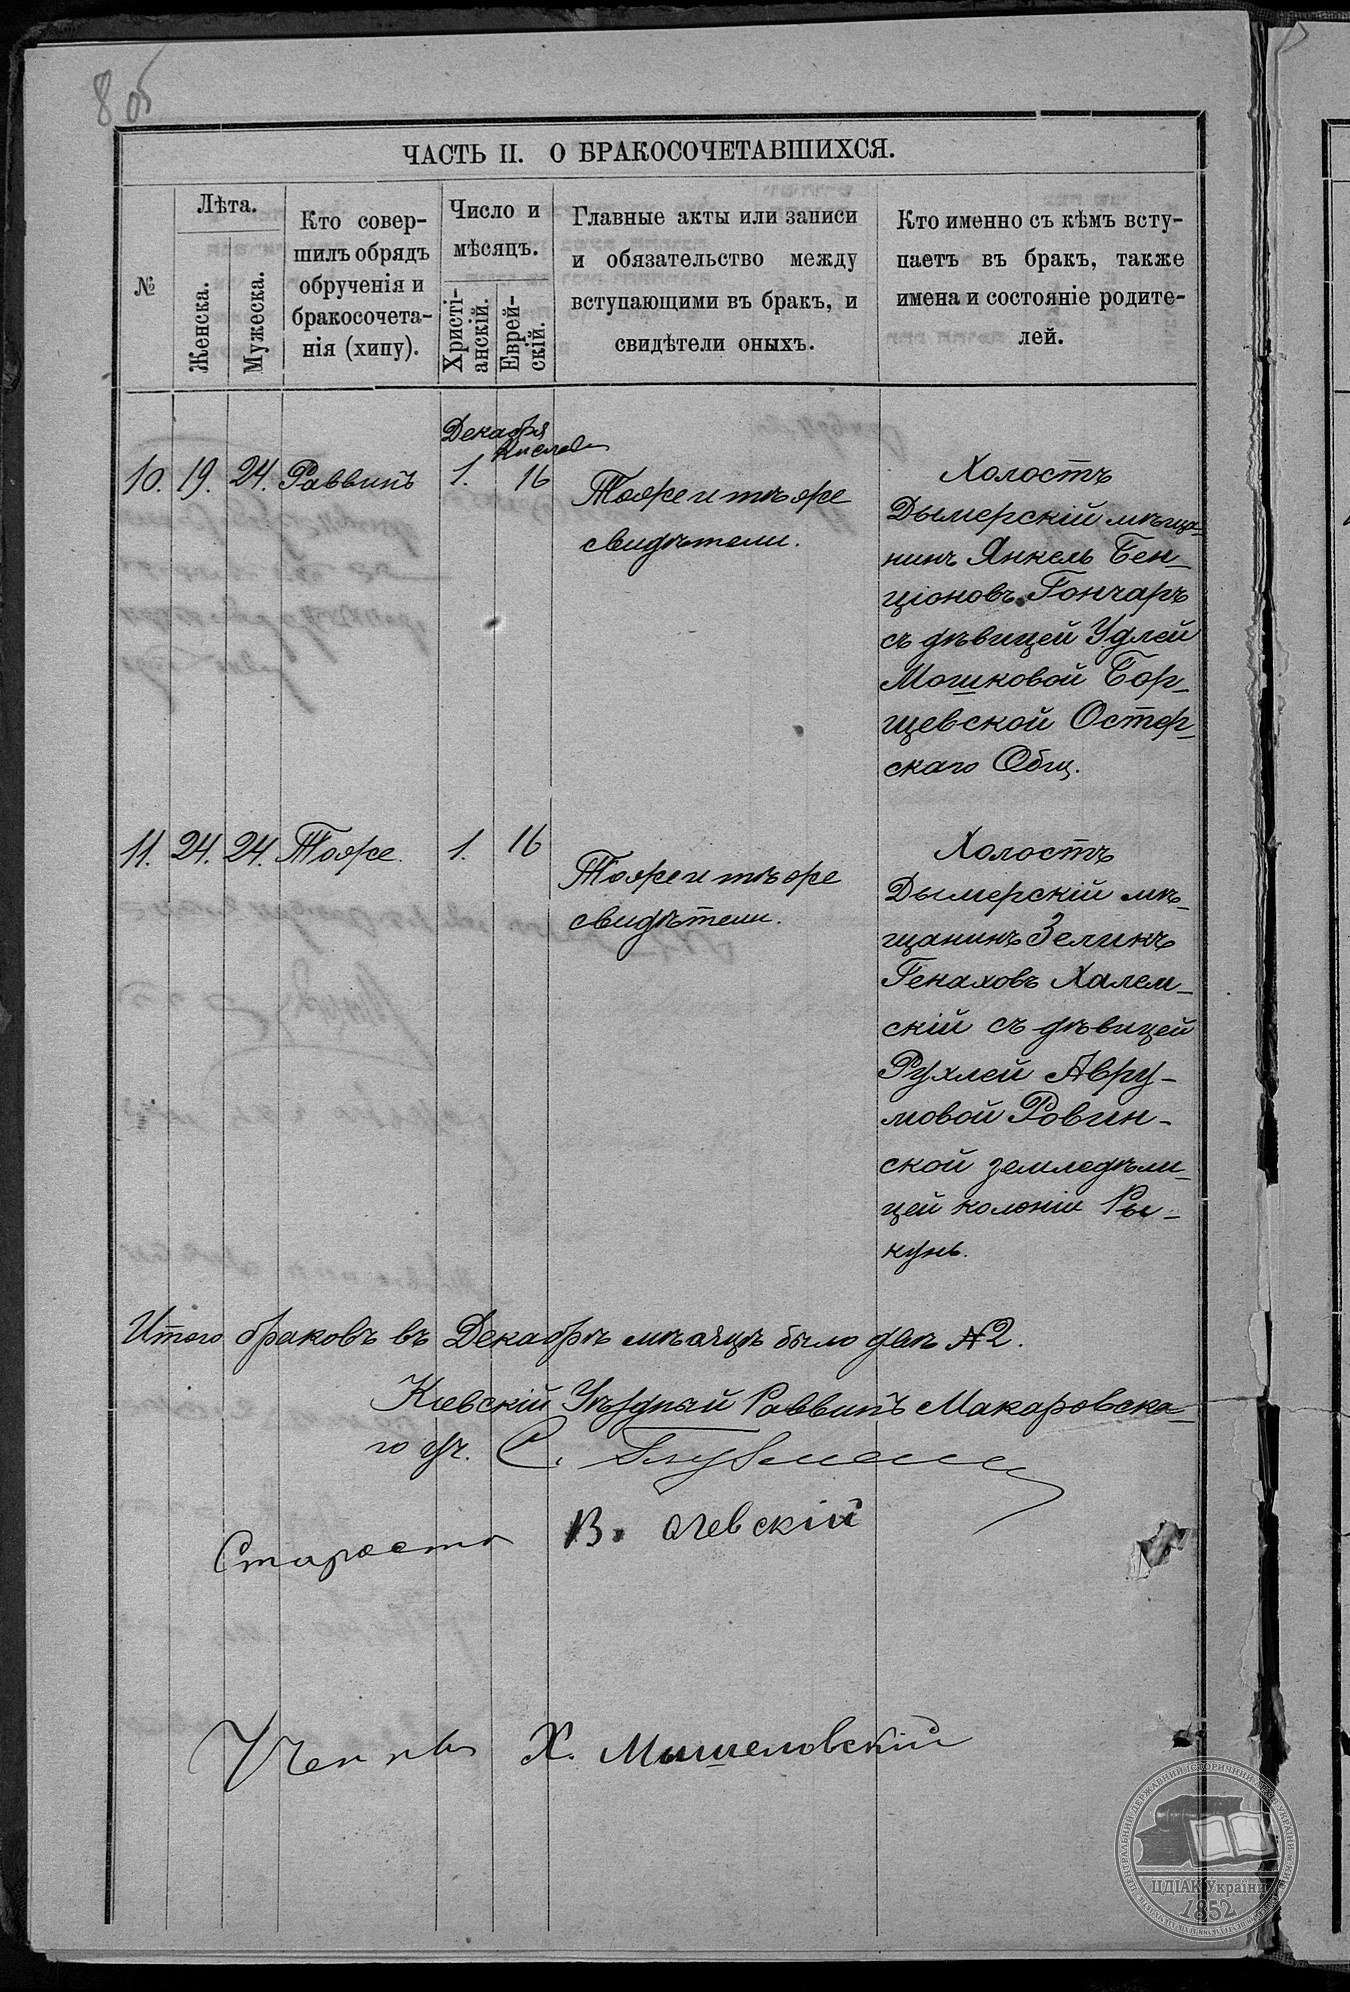 8 об
ЧАСТЬ II. О БРАКОСОЧЕТАВШИХСЯ.
№
Лѣта.
Женска.
Мужеска.
Кто совер-
шилъ обрядъ
обрученія и
бракосочета-
нія (хипу).
Число и
мѣсяцъ.
Христі-
анскій.
Еврей-
скій.
Главные акты или записи
и обязательство между
вступающими въ бракъ, и
свидѣтели оныхъ.
Кто именно съ кѣмъ всту-
паетъ въ бракъ, также
имена и состояніе родите-
лей.
Декабря
Кислев
10. 19. 24. Раввинъ 1. 16
Тоже и тѣ же
свидѣтели.
Холостъ
Дымерскій мѣща-
нинъ Янкель Бен-
ціоновъ Гончаръ
съ дѣвицей Удлей
Мошковой Бор-
щевской Остер-
скаго Общ.
11. 24. 24. Тоже. 1. 16
Тоже и тѣ же
свидѣтели.
Холостъ
Дымерскій мѣ-
щанинъ Зеликъ
Генаховъ Халем-
скій съ дѣвицей
Рухлей Авру-
мовой Ровин-
ской земледѣли-
цей колоніи Ры-
кунь.
Итого браковъ въ Декабрѣ мѣсяцѣ было двѣ №2.
Кіевскій Уѣздный Раввинъ Макаровска-
го уч. С.
Староста В.
Ученый Х. Мышеловскій
ЦЕНТРАЛЬНИЙ ДЕРЖАВНИЙ ІСТОРИЧНИЙ АРХІВ УКРАЇНИ
ЦДІАК України
1852